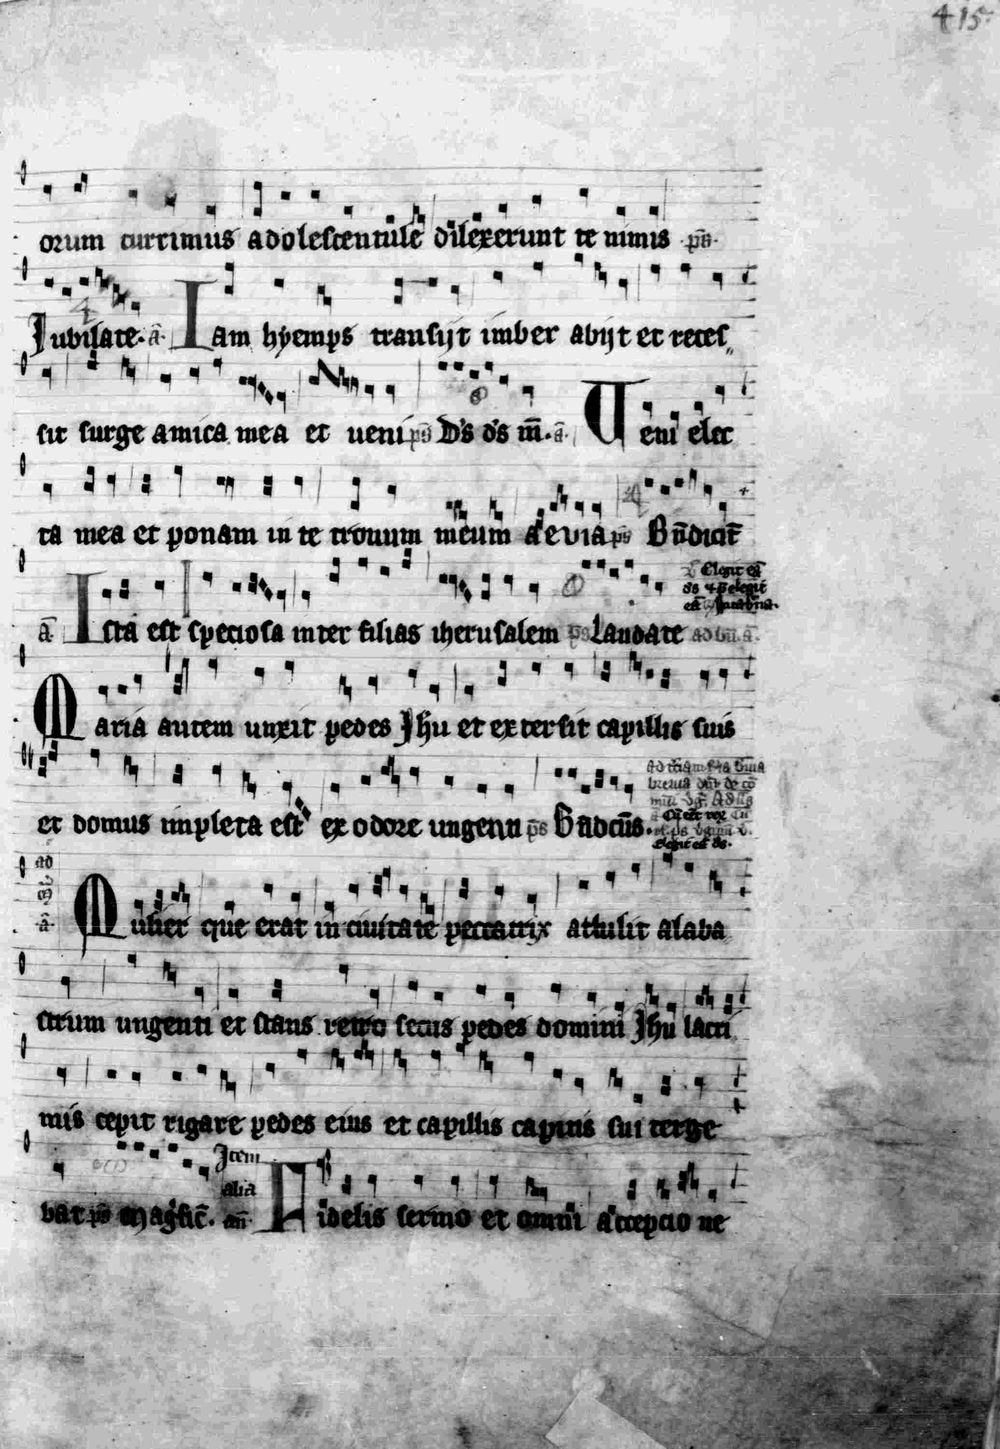 415
orum currimus adolescentule dilexerunt te nimis ps
Jubilate. a. Iam hyemps transijt imber abijt et reces
sit surge amica mea et ueni ps Ds ds m. a. Ueni elec
ta mea et ponam in te tronum meum aeuia ps Bndicit
Elegit ea
ds elegit
a Ista est speciosa inter filias iherusalem ps Laudate
Maria autem unxit pedes Jhu et extersit capillis suis
et domus impleta est ex odore ungenti ps Bndcus.
ad
a Mulier que erat in ciuitate peccatrix attulit alaba
strum ungenti et stans retro secus pedes domini Jhu lacri
mis cepit rigare pedes eius et capillis capitis sui terge
Item
alia
bat ps Magfic. an Fidelis sermo et omni accepcio ne